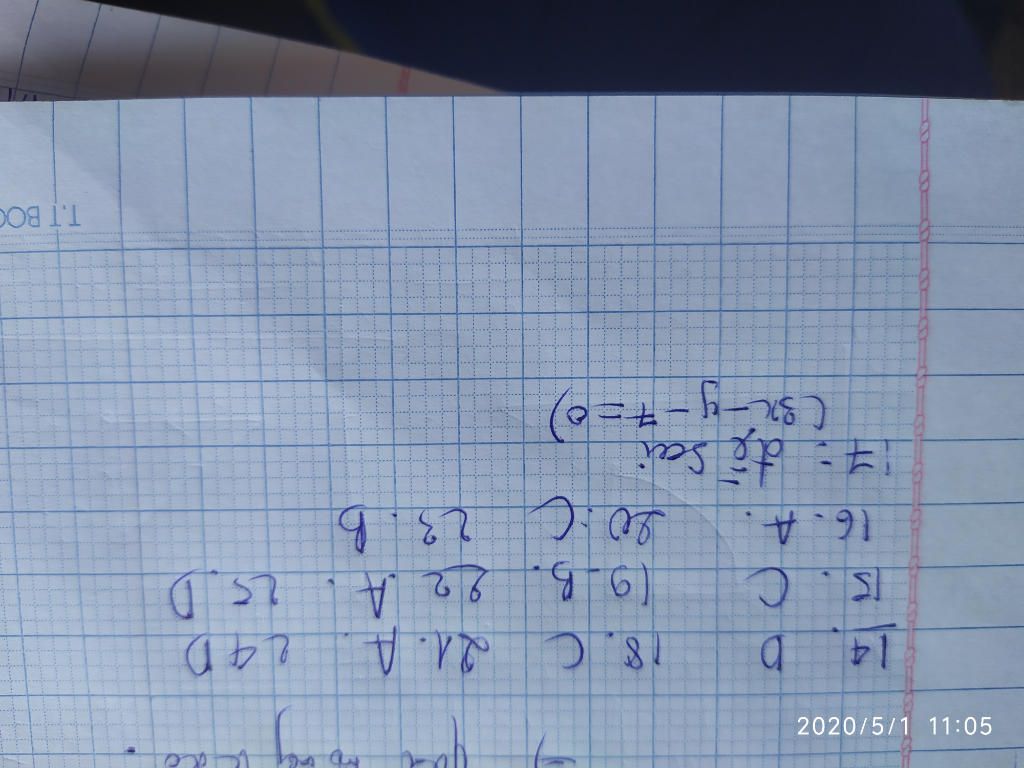 14. D 18. C 21. A. 24 D
15. C 19. B. 22 A. 25. D
16. A. 20. C 23. B
17: đề sai
(3x - y - 7 = 0)
T.T BOO
2020/5/1 11:05